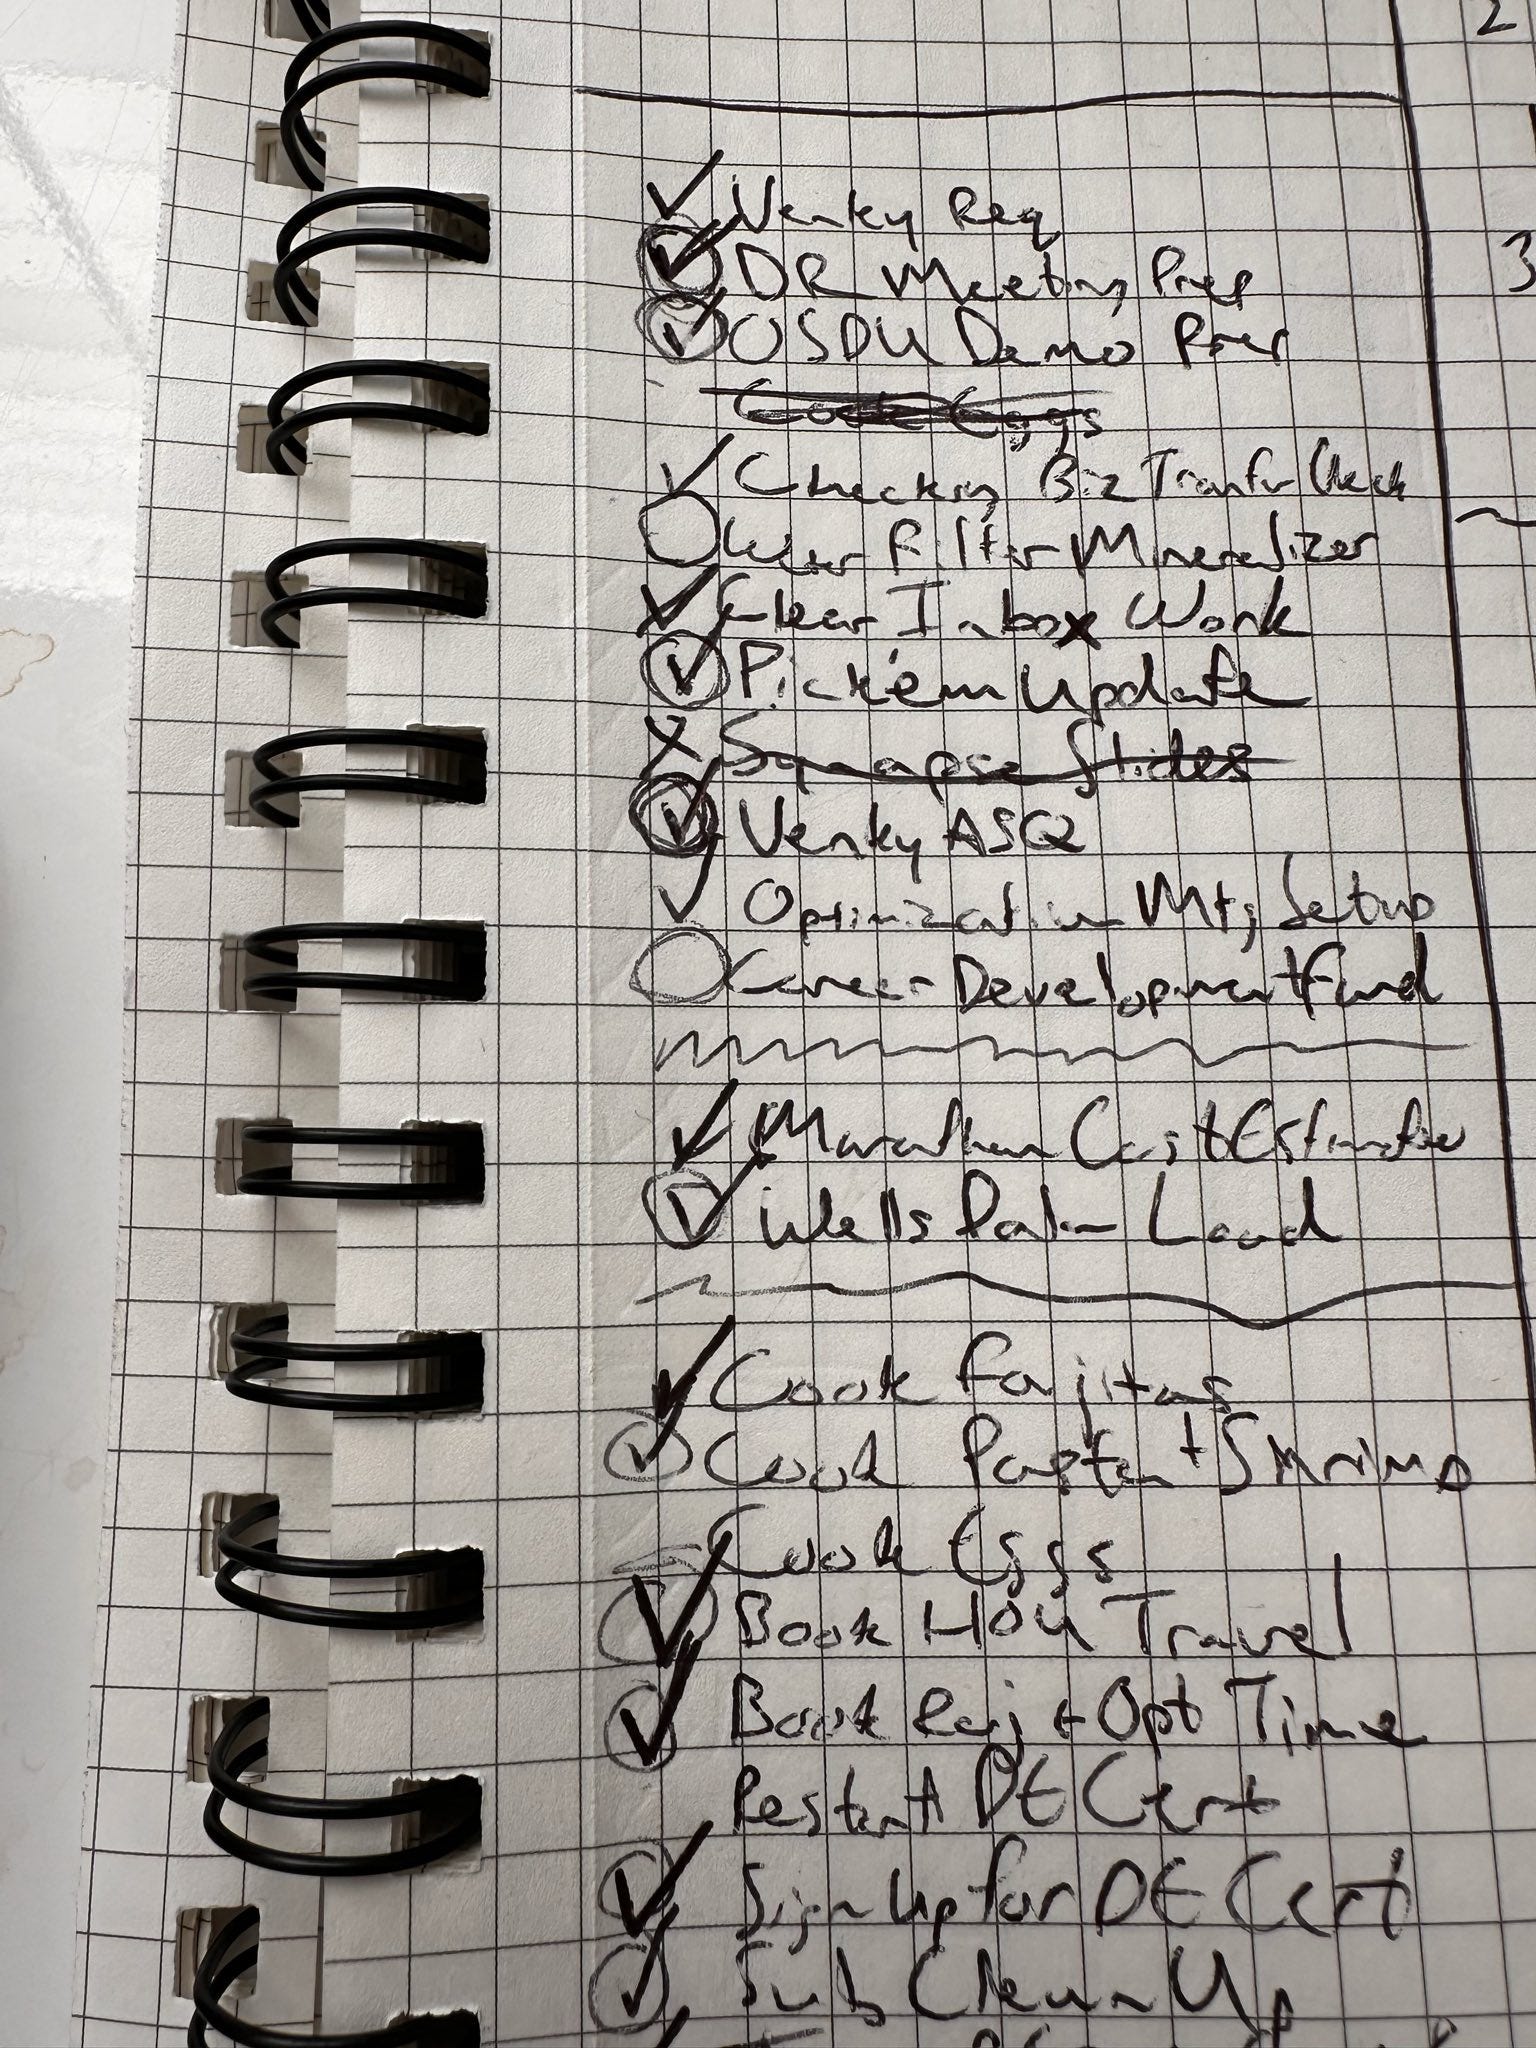 2
Venky Req
DR Meeting Prep
3
OSDU Demo Prep
Cook Eggs
Checking Biz Transfer Check
Water Filter Mineralizer
Clear Inbox Work
Pick'em Update
Synapse Slides
Venky ASQ
Optimization Mtg Setup
Career Development Fund
Marathon Cost Estimate
Wells Load
Cook Fajitas
Cook Pasta + Shrimp
Cook Eggs
Book HOU Travel
Book Raj + Opt Time
Restart DE Cert
Sign Up for DE Cert
Sub Clean Up